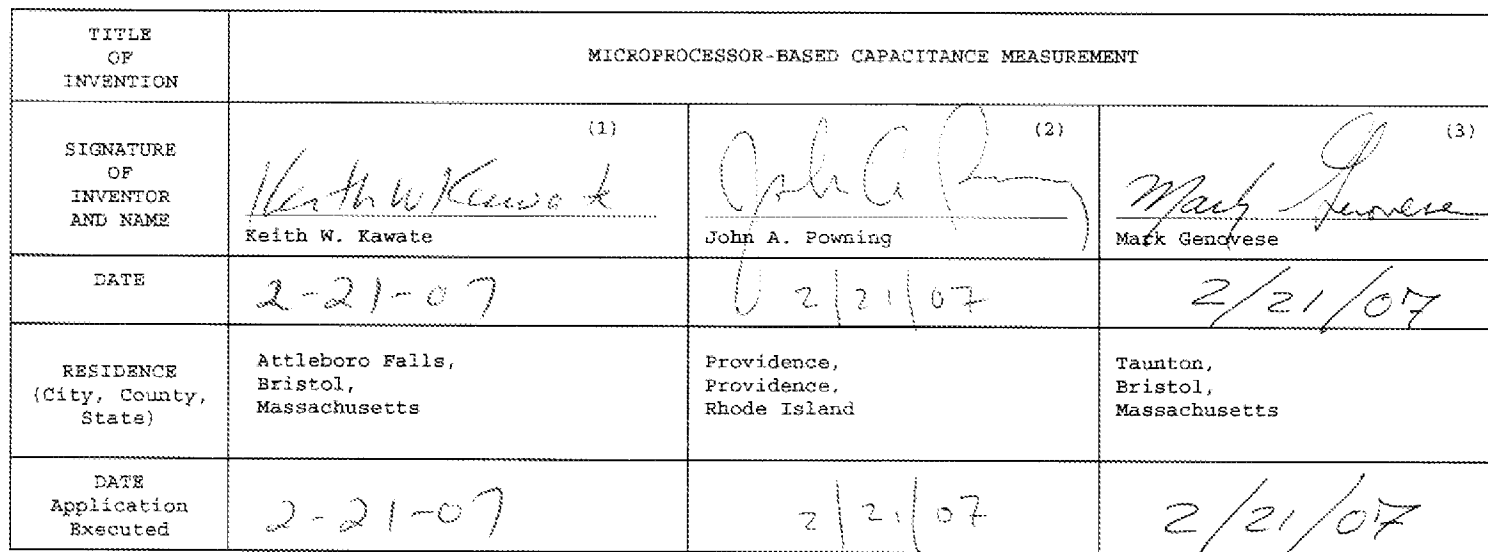 TITLE
OF
INVENTION
MICROPROCESSOR-BASED CAPACITANCE MEASUREMENT
SIGNATURE
OF
INVENTOR
AND NAME
(1)
Keith W Kawate
Keith W. Kawate
(2)
John A. Powning
(3)
Mark Genovese
Mark Genovese
DATE
2-21-07
2/21/07
2/21/07
RESIDENCE
(City, County,
State)
Attleboro Falls,
Bristol,
Massachusetts
Providence,
Providence,
Rhode Island
Taunton,
Bristol,
Massachusetts
DATE
Application
Executed
2-21-07
2/21/07
2/21/07